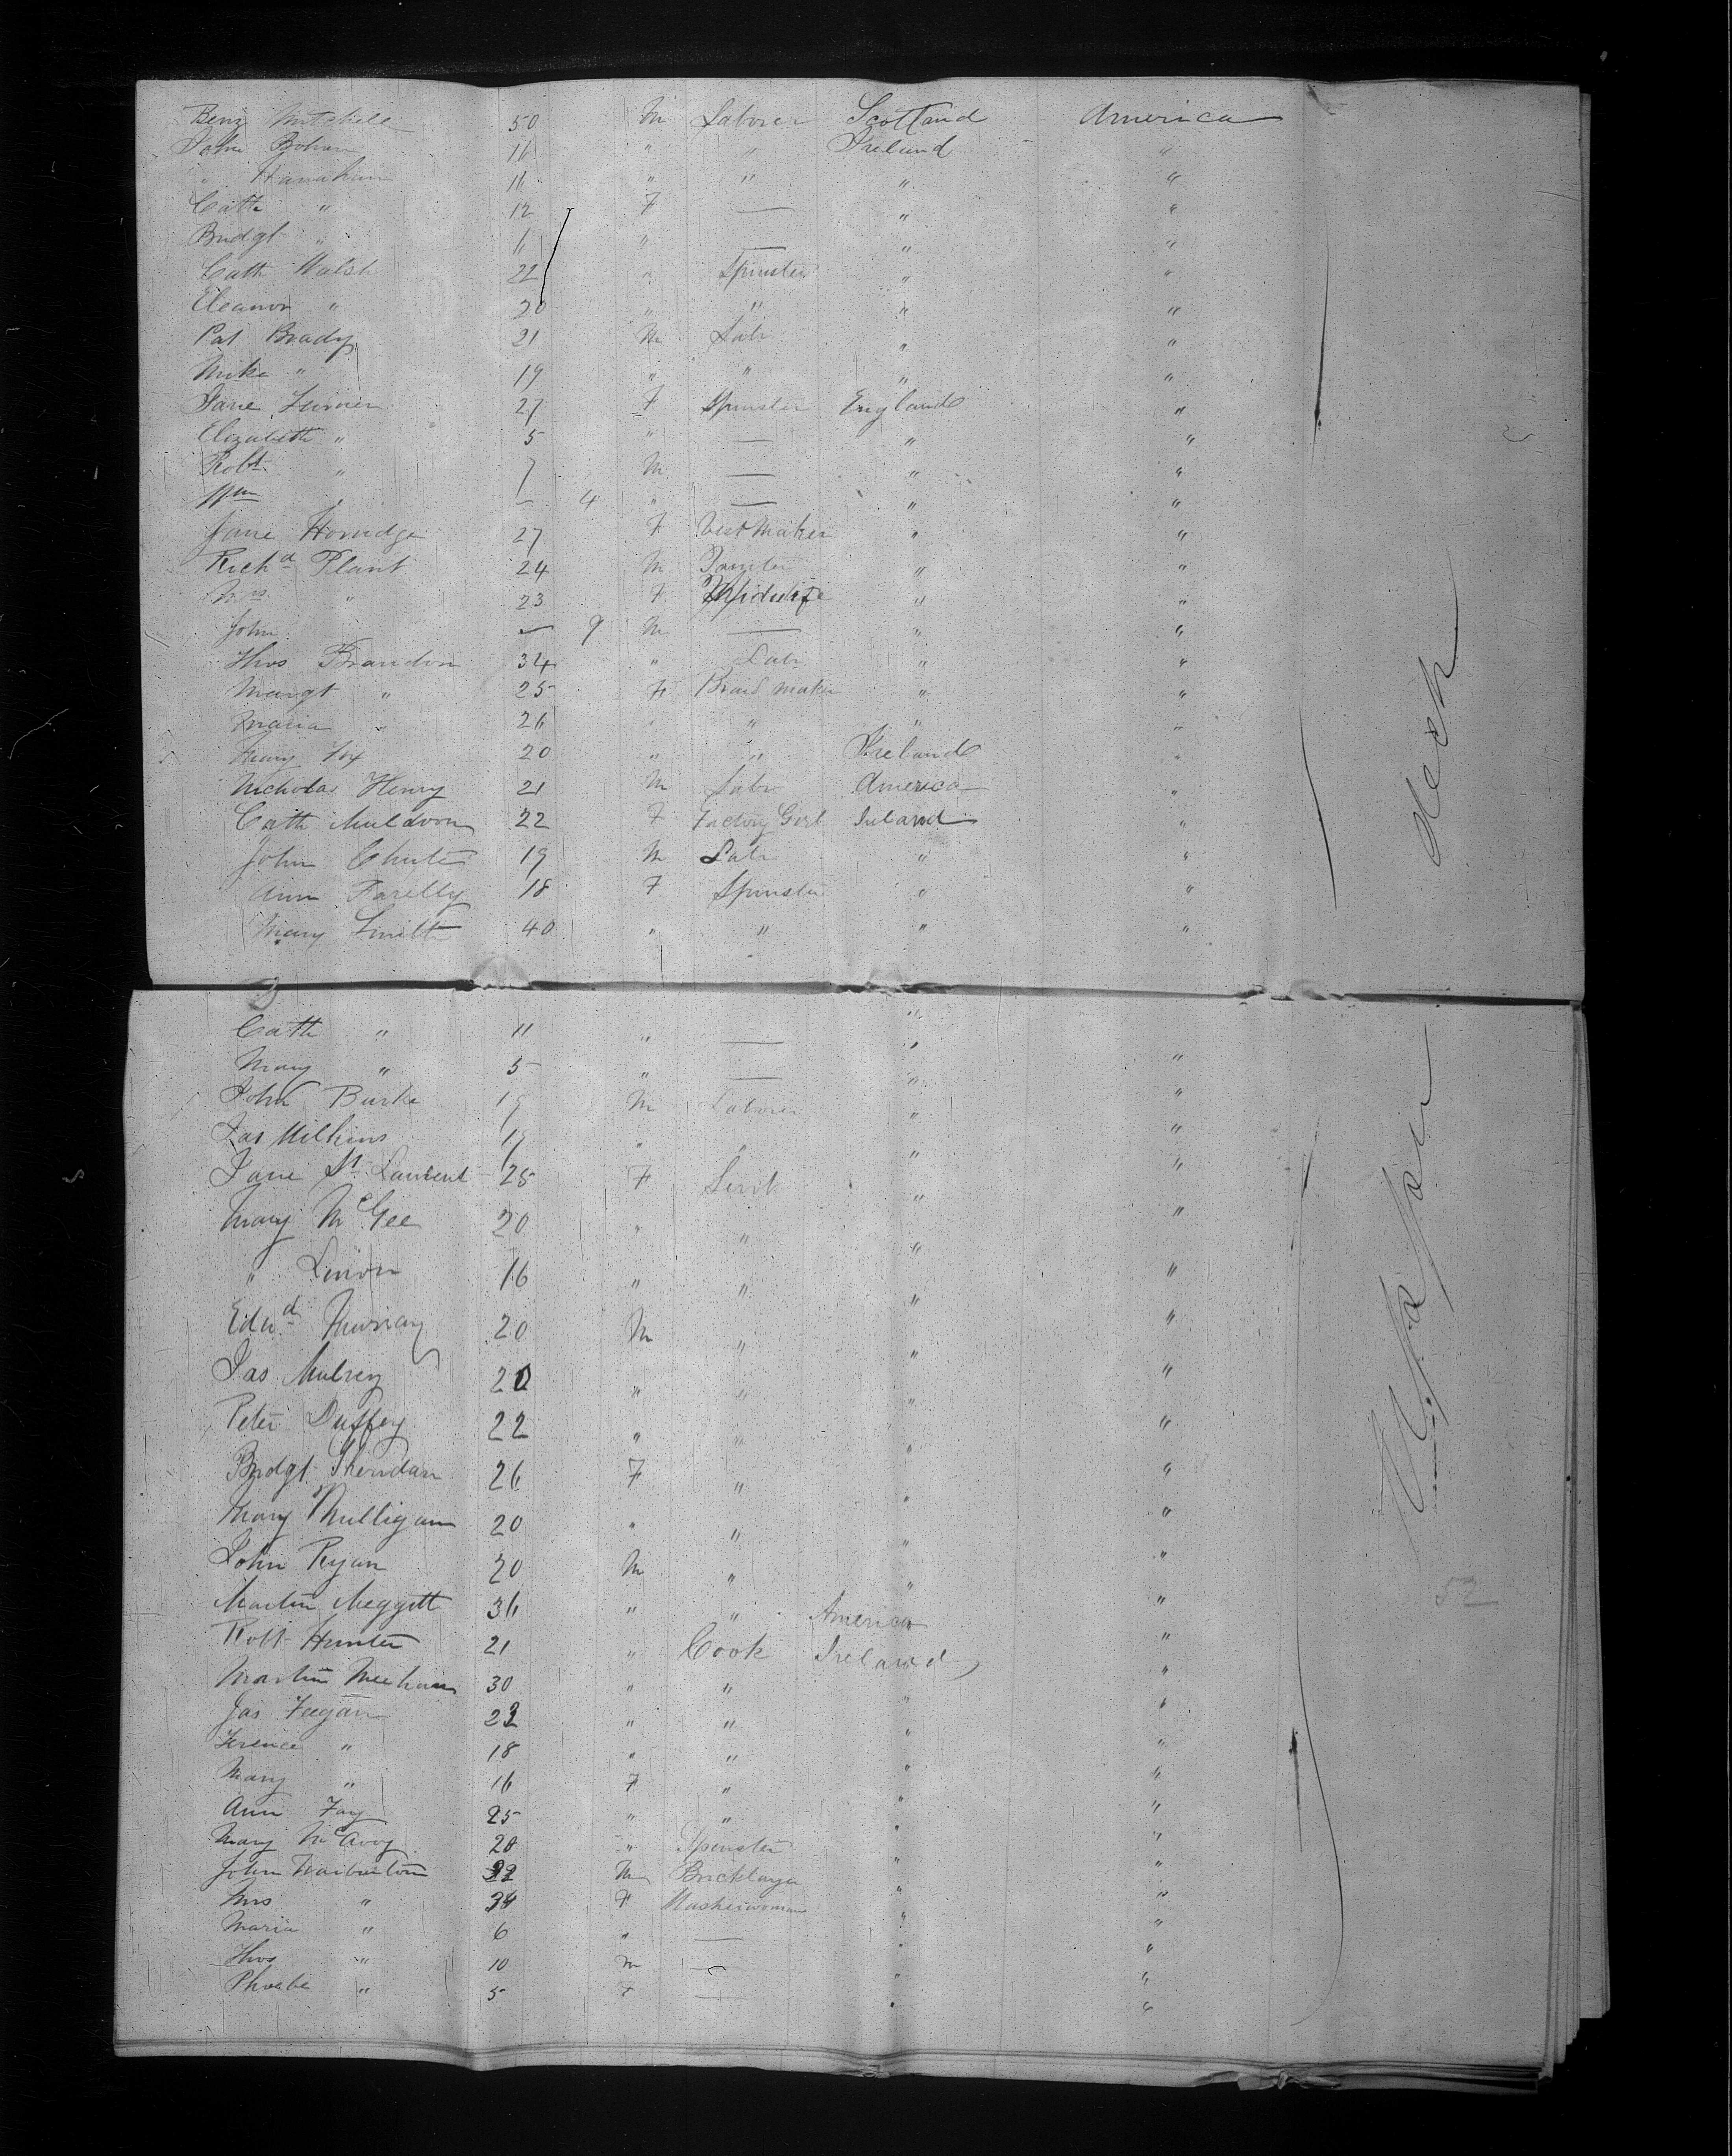 Benj Mitchell 50 M Laborer Scotland America
John Bohan 16 " " Ireland "
" Hanahan 16 " " " "
Cath " 12 F — " "
Bridgt " 11 " — " "
Cath Walsh 22 " Spinster " "
Eleanor " 20 " " " "
Pat Brady 21 M Labr " "
Mike " 19 " " " "
Jane Turner 27 F Spinster England "
Elizabeth " 5 " — " "
Robt " 7 M — " "
Wm " — 4 " — " "
Jane Horridge 27 F Vest Maker " "
Richd Plant 24 M Painter " "
Mrs " 23 F Midwife " "
John — 9 M — " "
Thos Brandon 34 " Labr " "
Margt " 25 F Braid maker " "
Maria " 26 " " " "
Mary Fox 20 " " Ireland "
Nicholas Henry 21 M Labr America "
Cath Muldoon 22 F Factory Girl Ireland "
John Chute 19 M Labr " "
Ann Farelly 18 F Spinster " "
Mary Smith 40 " " " "
deck
Cath " 11 " — "
Mary " 5 " — " "
John Burke 19 M Laborer " "
Jas Wilkins 19 " " " "
Jane St Laurent 25 F Servt " "
Mary McGee 20 " " " "
" 16 " " " "
Edwd Murray 20 M " " "
Jas Mulrey 20 " " " "
Peter Duffey 22 " " " "
Bridgt Sheridan 26 F " " "
Mary Mulligan 20 " " " "
John Ryan 20 M " " "
Martin Meggitt 36 " " America "
Robt Hunter 21 " Cook Ireland "
Martin Meehan 30 " " " "
Jas Feegan 23 " " " "
Terence " 18 " " " "
Mary " 16 F " " "
Ann Fay 25 " " " "
Mary McAvoy 20 " Spinster " "
John Warburton 32 M Bricklayer " "
Mrs " 34 F Washerwoman " "
Maria " 6 " — " "
Thos " 10 M — " "
Phoebe " 5 F — " "
52